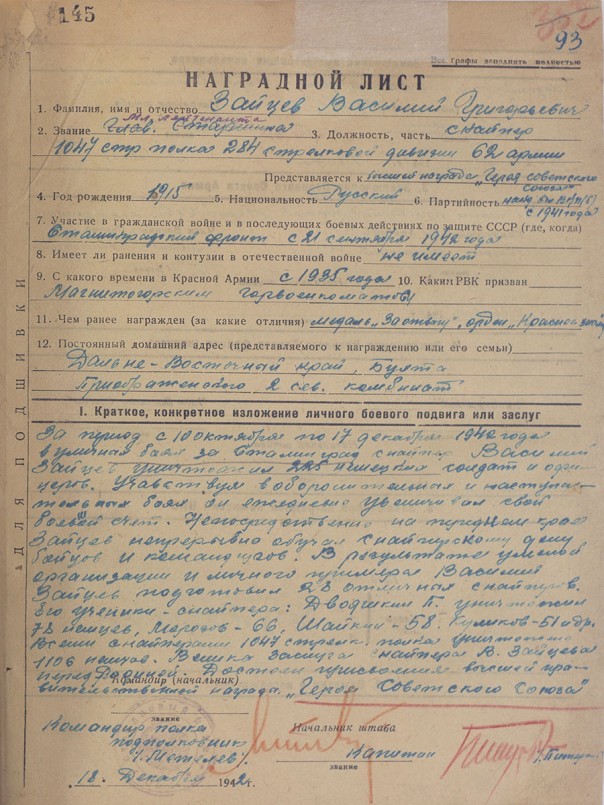 145
93
Все графы заполнять полностью
НАГРАДНОЙ ЛИСТ
1. Фамилия, имя и отчество Зайцев Василий Григорьевич
Мл. лейтенанта
2. Звание Глав. Старшина 3. Должность, часть снайпер
1047 стр. полка 284 стрелковой дивизии 62 армии
Представляется к высшей награде „Героя Советского
Союза“
4. Год рождения 1915 5. Национальность Русский 6. Партийность
с 1941 года
7. Участие в гражданской войне и в последующих боевых действиях по защите СССР (где, когда)
Сталинградский фронт с 21 сентября 1942 года
8. Имеет ли ранения и контузии в отечественной войне не имеет
9. С какого времени в Красной Армии с 1935 года 10. Каким РВК призван
Магнитогорским горвоенкоматом
11. Чем ранее награжден (за какие отличия) медаль „За отвагу“, орден „Красное
12. Постоянный домашний адрес (представляемого к награждению или его семьи)
Дальне-Восточный край, Бухта
Приображенского 2 сев. комбинат
I. Краткое, конкретное изложение личного боевого подвига или заслуг
За период с 10 октября по 17 декабря 1942 года
в уличных боях за Сталинград снайпер Василий
Зайцев уничтожил 225 немецких солдат и офи-
церов. Учавствуя в оборонительных и наступа-
тельных боях он ежедневно увеличивал свой
боевой счет. Непосредственно на переднем крае
Зайцев непрерывно обучал снайперскому делу
бойцов и командиров. В результате умелой
организации и личного примера Василий
Зайцев подготовил 28 отличных снайперов.
Его ученики - снайпера: Двояшкин П. уничтожил
78 немцев, Морозов - 66, Шайкин - 58. Куликов - 51 и др.
Всеми снайперами 1047 стрелк. полка уничтожено
1106 немцев. Велика заслуга снайпера В. Зайцева
перед Родиной. Достоин присвоения высшей пра-
вительственной награды „Героя Советского Союза“
Командир (начальник)
звание
Командир полка
подполковник
/. Метелев/.
Начальник штаба
Капитан
звание
18 Декабря 1942 г.
ДЛЯ ПОДШИВКИ